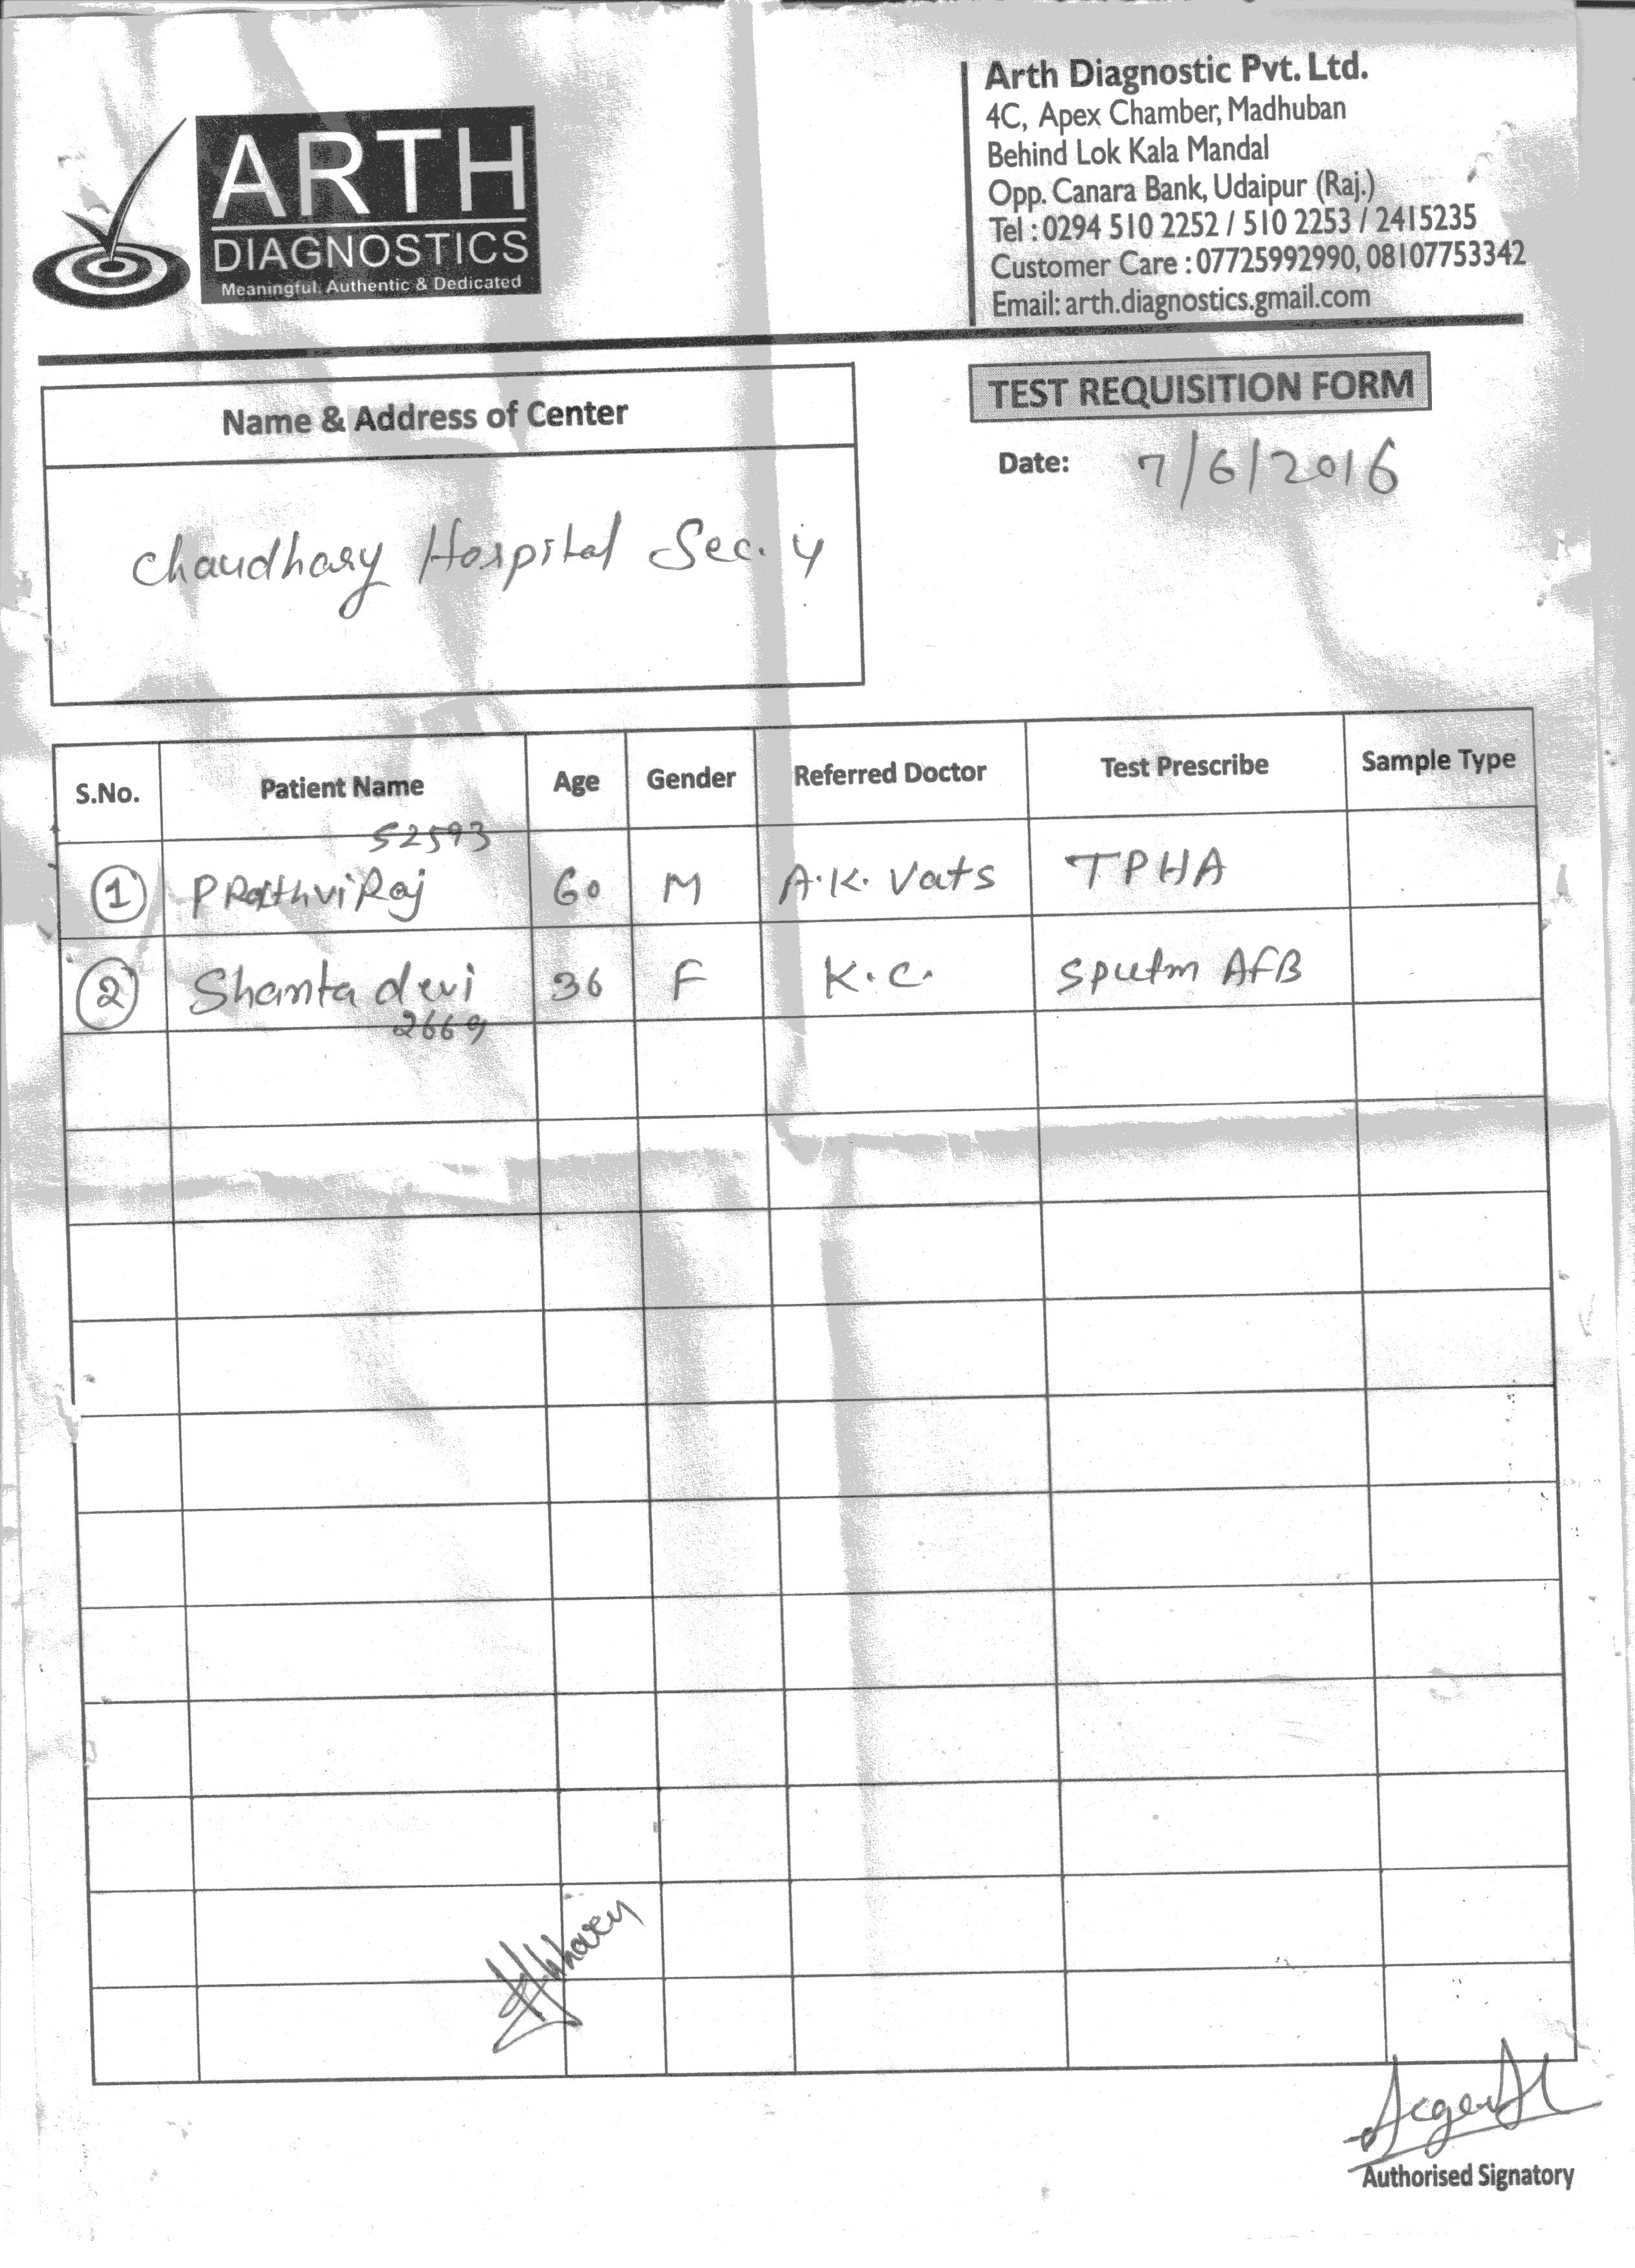 ARTH
DIAGNOSTICS
Meaningful. Authentic & Dedicated
Arth Diagnostic Pvt. Ltd.
4C, Apex Chamber, Madhuban
Behind Lok Kala Mandal
Opp. Canara Bank, Udaipur (Raj.)
Tel : 0294 510 2252 / 510 2253 / 2415235
Customer Care : 07725992990, 08107753342
Email: arth.diagnostics.gmail.com
Name & Address of Center
Chaudhary Hospital Sec. 4
TEST REQUISITION FORM
Date: 7/6/2016
S.No. Patient Name Age Gender Referred Doctor Test Prescribe Sample Type
52593
1 PRathviRaj 60 M A.K. Vats TPHA
2 Shanta devi 36 F K.C. Sputm AFB
2669
Authorised Signatory